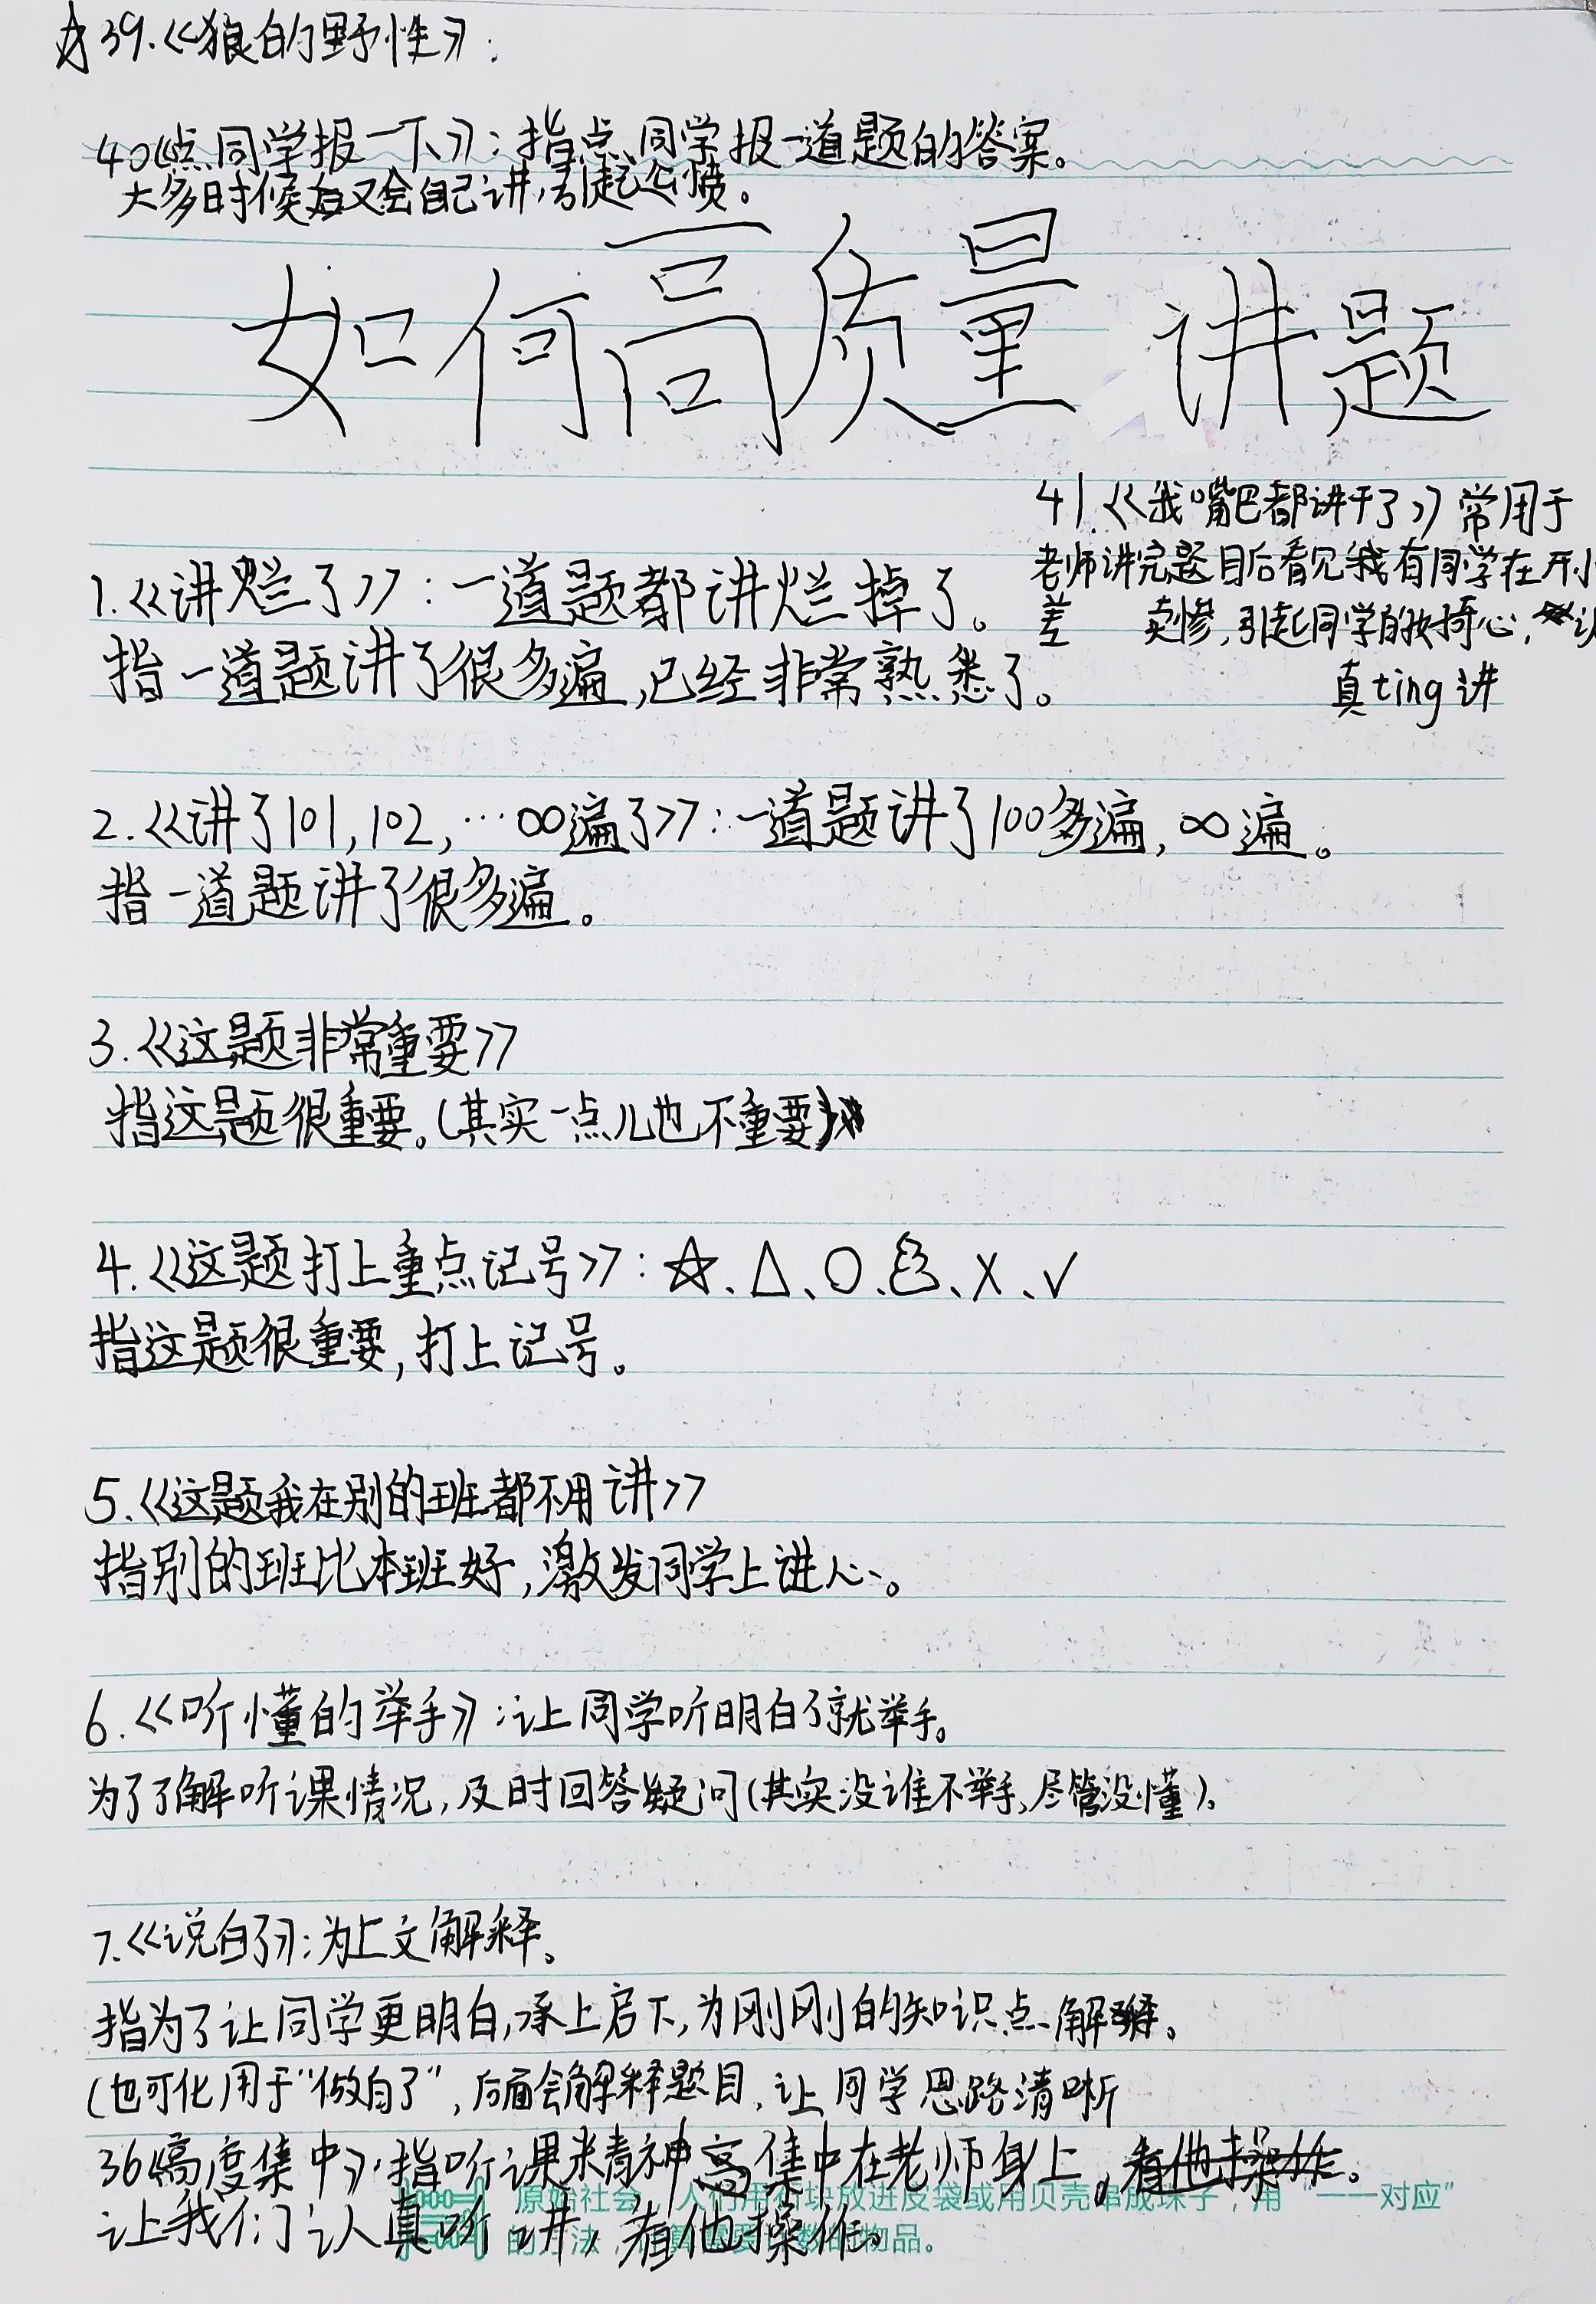 ☆39.《狼的野性》:
40《点同学报一下》:指点同学报一道题的答案。
大多时候又会自己讲,引起公愤。
如何高质量讲题
41.《我嘴巴都讲干了》常用于
老师讲完题目后看见我有同学在开小
差 卖惨,引起同学的好奇心,
真ting讲
1.《讲烂了》:一道题都讲烂掉了。
指一道题讲了很多遍,已经非常熟悉了。
2.《讲了101,102,…∞遍了》:一道题讲了100多遍,∞遍。
指一道题讲了很多遍。
3.《这题非常重要》
指这题很重要。(其实一点儿也不重要)
4.《这题打上重点记号》:☆、△、○、、X、✓
指这题很重要,打上记号。
5.《这题我在别的班都不用讲》
指别的班比本班好,激发同学上进心。
6.《听懂的举手》:让同学听明白了就举手。
为了了解听课情况,及时回答疑问(其实没谁不举手,尽管没懂)。
7.《说白了》:为上文解释。
指为了让同学更明白,承上启下,为刚刚的知识点解释。
(也可化用于“做白了”,后面会解释题目,让同学思路清晰
36《高度集中》:指听课精神高集中在老师身上,看他操作。
让我们认真听讲,看他操作。
原始社会,人们用石块放进皮袋或用贝壳串成珠子,用“一一对应”
的方法,计算需要计数的物品。